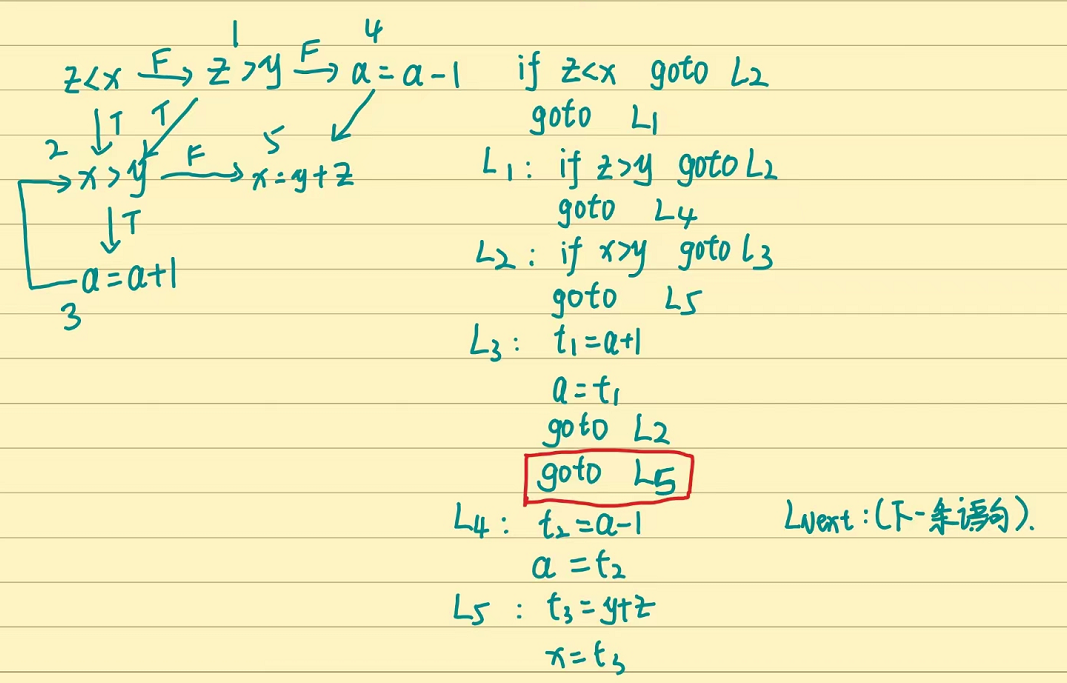 1 4
z<x F→ z>y F→ a=a-1
↓T T
2 5
x>y F→ x=y+z
↓T
a=a+1
3
if z<x goto L2
goto L1
L1: if z>y goto L2
goto L4
L2: if x>y goto L3
goto L5
L3: t1=a+1
a=t1
goto L2
goto L5
L4: t2=a-1
a=t2
L5: t3=y+z
x=t3
LNext:(下一条语句).